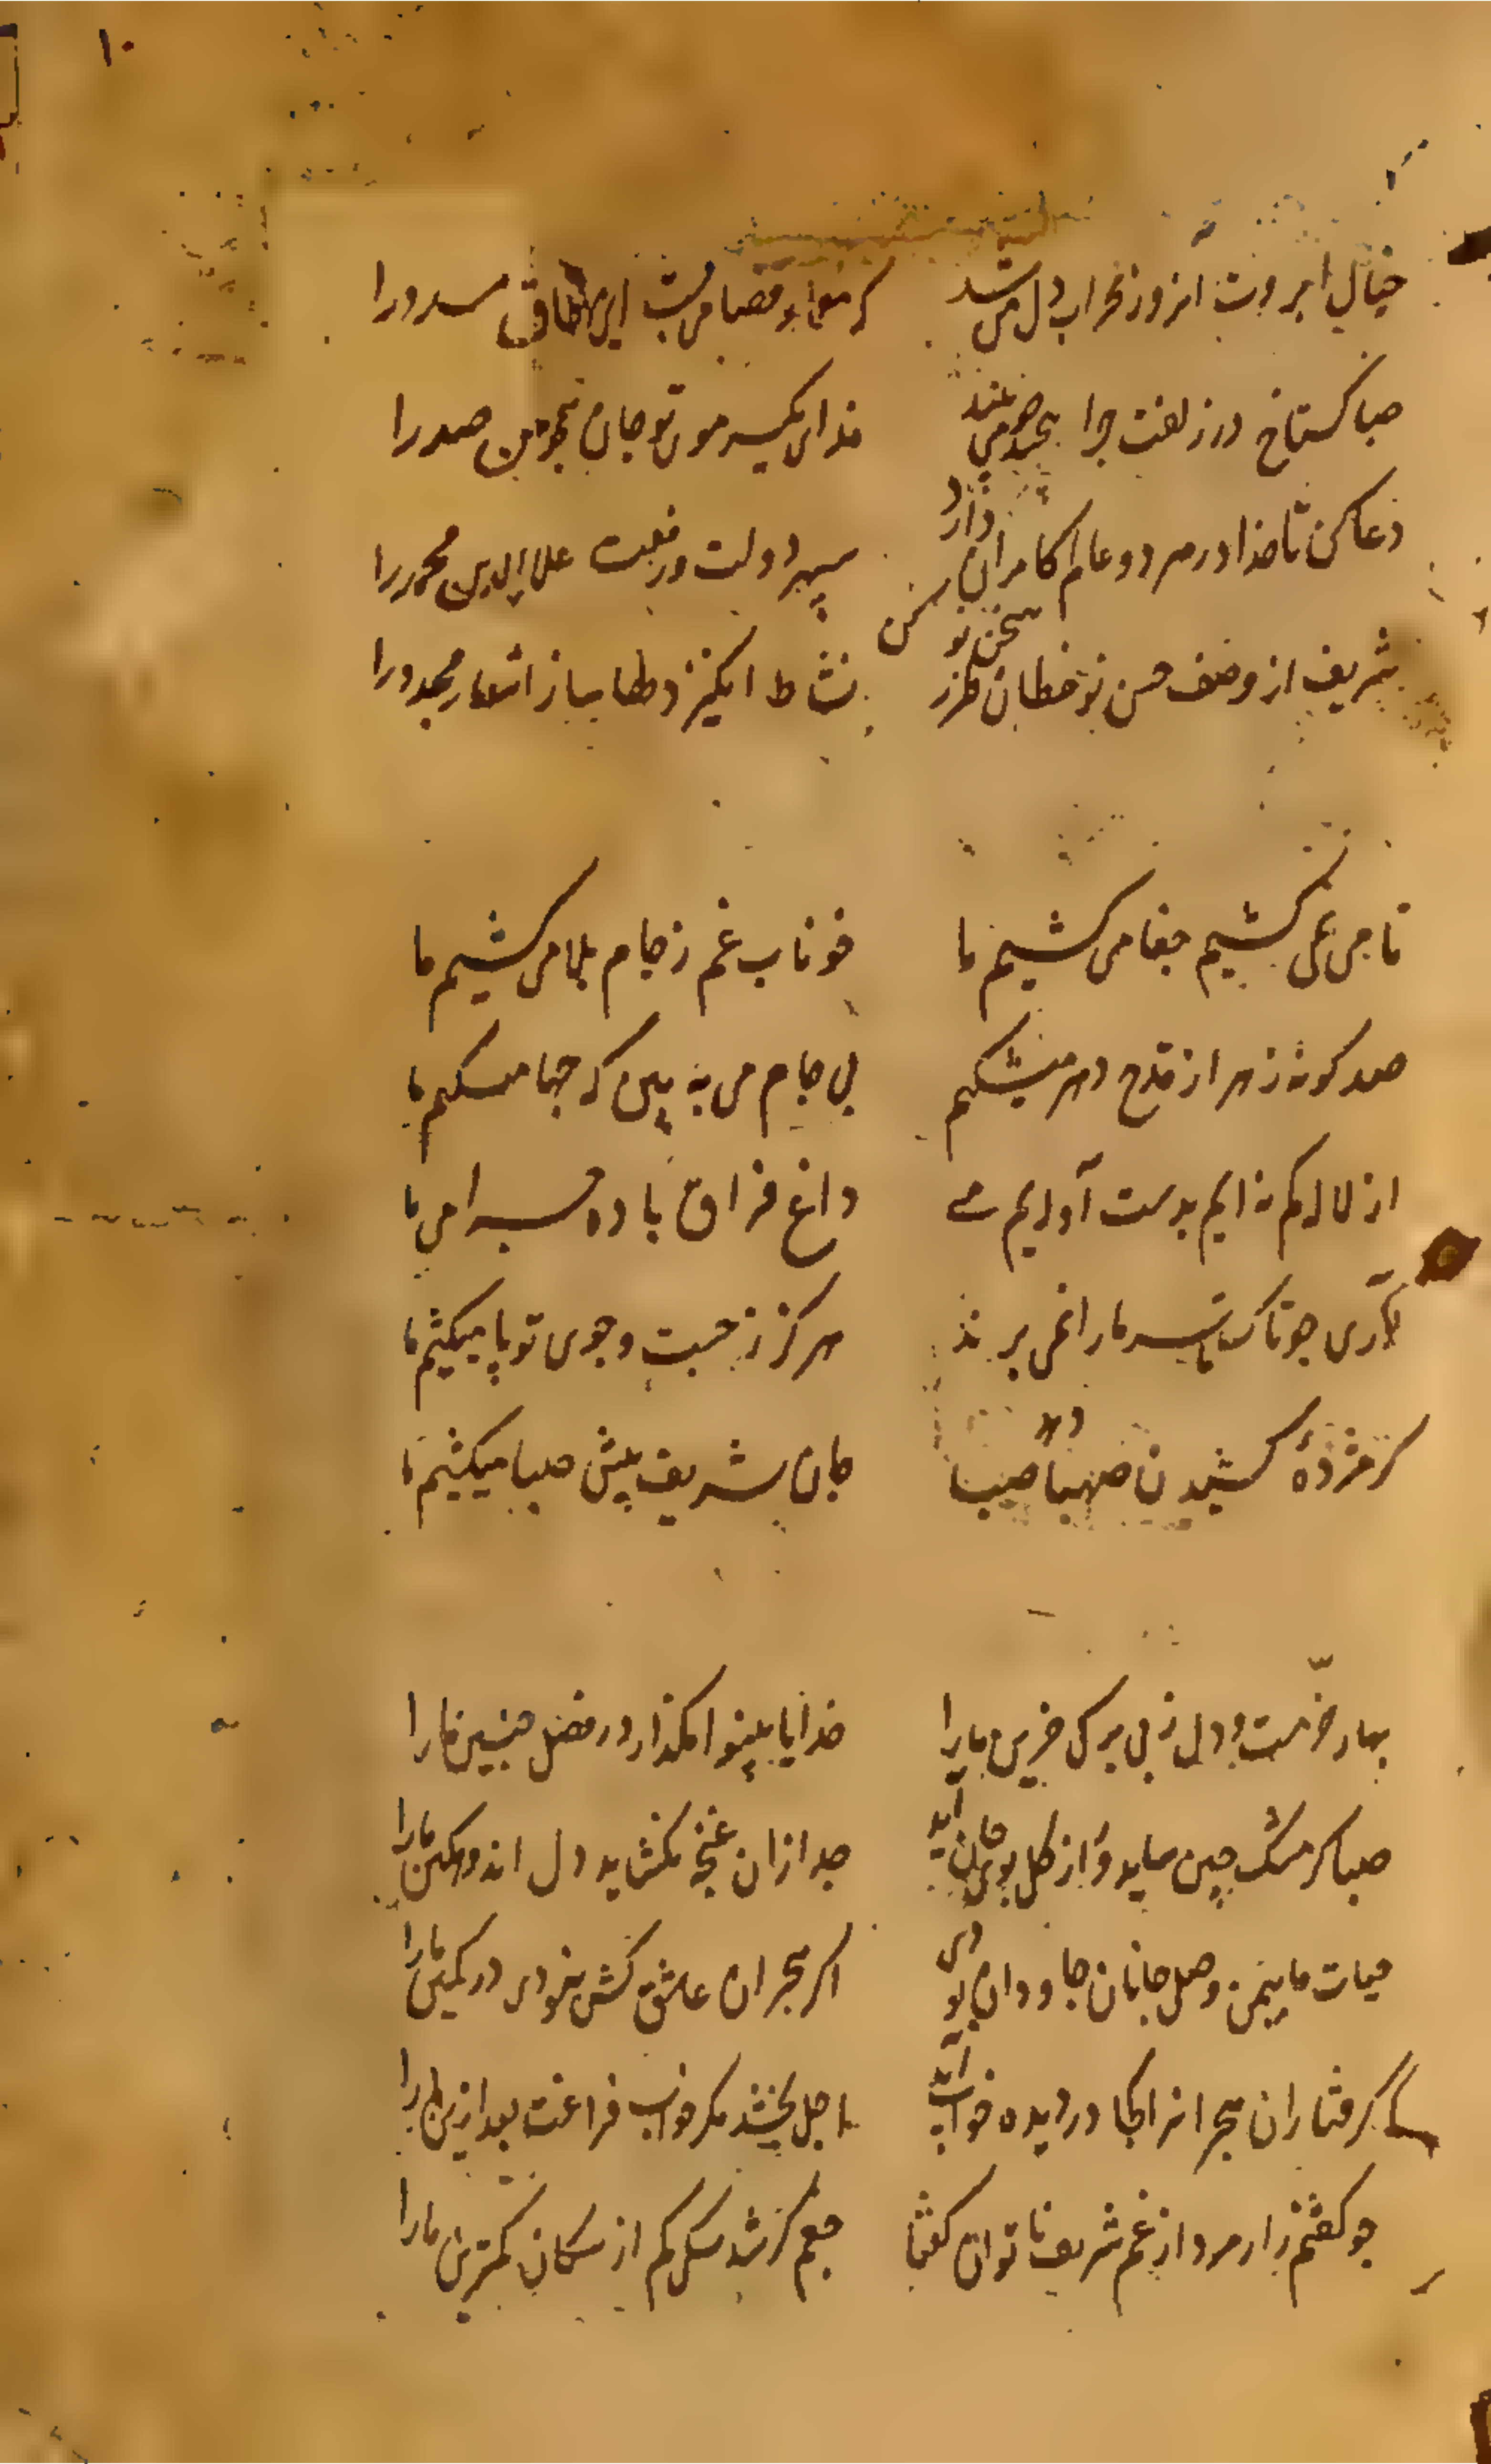 ۱۰
خیال ابروت امروز محراب دل من شد که معمار قضا می بست این طاق مسدورا
صبا کستاخ در زلفت چرا بیخود می جنبد فدای یکسر موی تو جان همچو من صدرا
دعا کن تا خدا در هر دو عالم کامران دارد سپهر دولت و رفعت علاءالدین محمدرا
شریف از وصف حسن نوخطان طرز سخن نو کن نشاط انکیز دلها ساز اشعار مجددرا
تا می نمی کشیم جفا می کشیم ما خوناب غم ز جام بلا می کشیم ما
صد کونه زهر از قدح دهر میشکیم بی جام می به بین که جها میکشیم ما
از لاله کم نه ایم بدست آوریم می داغ فراق باده چرا می ما
آری چو تاک تا سر ما را نمی برند هرکز ز جست و جوی تو پا میکشیم ما
کر مژدهٔ کشیدن صهبا دهد صبا جان شریف پیش صبا میکشیم ما
بهار خرّمست و دل ز بی برکی حزین مارا خدایا بینوا مکذار در فصل چنین مارا
صبا کر مشک چین ساید و از کل بوی جان آید جدا از ان غنچه نکشاید دل اندوهکین مارا
حیات ما بیمن وصل جانان جاودان بودی اکر هجران عاشق کش نبودی در کمین مارا
گرفتاران هجرانرا کجا در دیده خواب آید اجل بخشد مکر خواب فراغت بعد ازین مارا
چو کفتم زار مرد از غم شریف ناتوان کفتا چه غم کر شد سکی کم از سکان کمترین مارا